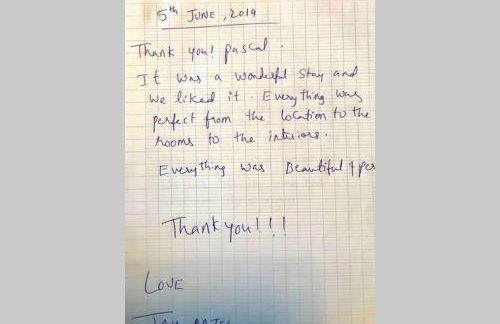 5th JUNE, 2019
Thank you! pascal.
It was a wonderful stay and
we liked it. Everything was
perfect from the location to the
rooms to the interiors.
Everything was Beautiful & per
Thank you!!!
LOVE